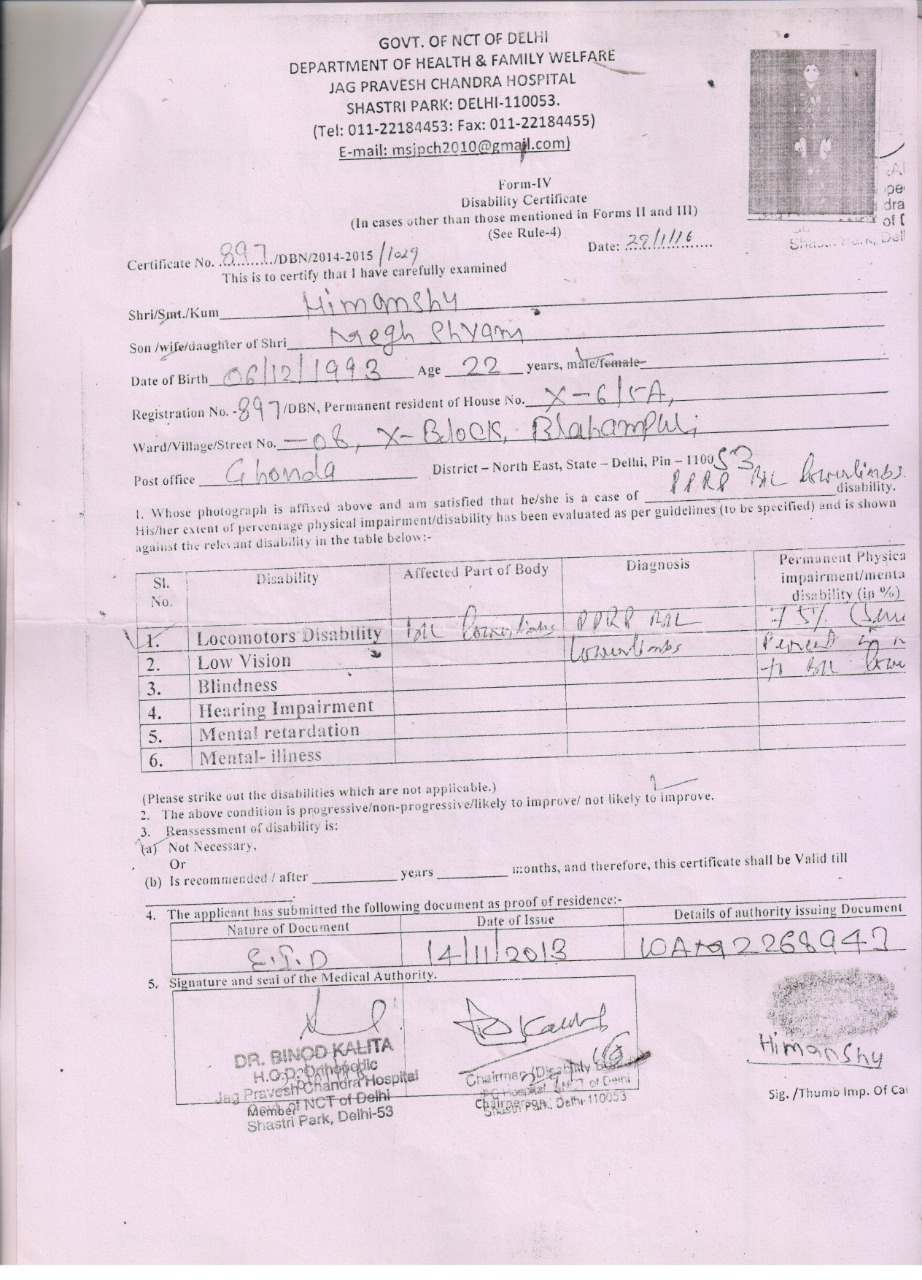 GOVT. OF NCT OF DELHI
DEPARTMENT OF HEALTH & FAMILY WELFARE
JAG PRAVESH CHANDRA HOSPITAL
SHASTRI PARK: DELHI-110053.
(Tel: 011-22184453: Fax: 011-22184455)
E-mail: msjpch2010@gmail.com)
Form-IV
Disability Certificate
(In cases other than those mentioned in Forms II and III)
(See Rule-4)
Certificate No. 897/DBN/2014-2015/1029 Date: 29/1/16
This is to certify that I have carefully examined
Shri/Smt./Kum Himanshy
Son /wife/daughter of Shri Megh Shyam
Date of Birth 06/12/1993 Age 22 years, male/female
Registration No. -897/DBN, Permanent resident of House No. X-6/5A,
Ward/Village/Street No. -08, X-Block,
Post office Ghonda District – North East, State – Delhi, Pin – 110053
1. Whose photograph is affixed above and am satisfied that he/she is a case of PPRP B/L lowerlimbs disability.
His/her extent of percentage physical impairment/disability has been evaluated as per guidelines (to be specified) and is shown
against the relevant disability in the table below:-
Sl. No. Disability Affected Part of Body Diagnosis Permanent Physica impairment/menta disability (in %)
1. Locomotors Disability B/L lowerlimbs PPRP B/L lowerlimbs 75%
2. Low Vision
3. Blindness
4. Hearing Impairment
5. Mental retardation
6. Mental- illness
(Please strike out the disabilities which are not applicable.)
2. The above condition is progressive/non-progressive/likely to improve/ not likely to improve.
3. Reassessment of disability is:
(a) Not Necessary,
Or
(b) Is recommended / after years months, and therefore, this certificate shall be Valid till
4. The applicant has submitted the following document as proof of residence:-
Nature of Document Date of Issue Details of authority issuing Document
14/11/2013
5. Signature and seal of the Medical Authority.
DR. BINOD KALITA
H.O.D. Orthopedic
Jag Pravesh Chandra Hospital
Member of NCT of Delhi
Shastri Park, Delhi-53
Chairman Disability
Hospital NCT of Delhi
Chairperson
Shastri Park, Delhi-110053
Himanshy
Sig. /Thumb Imp. Of Ca